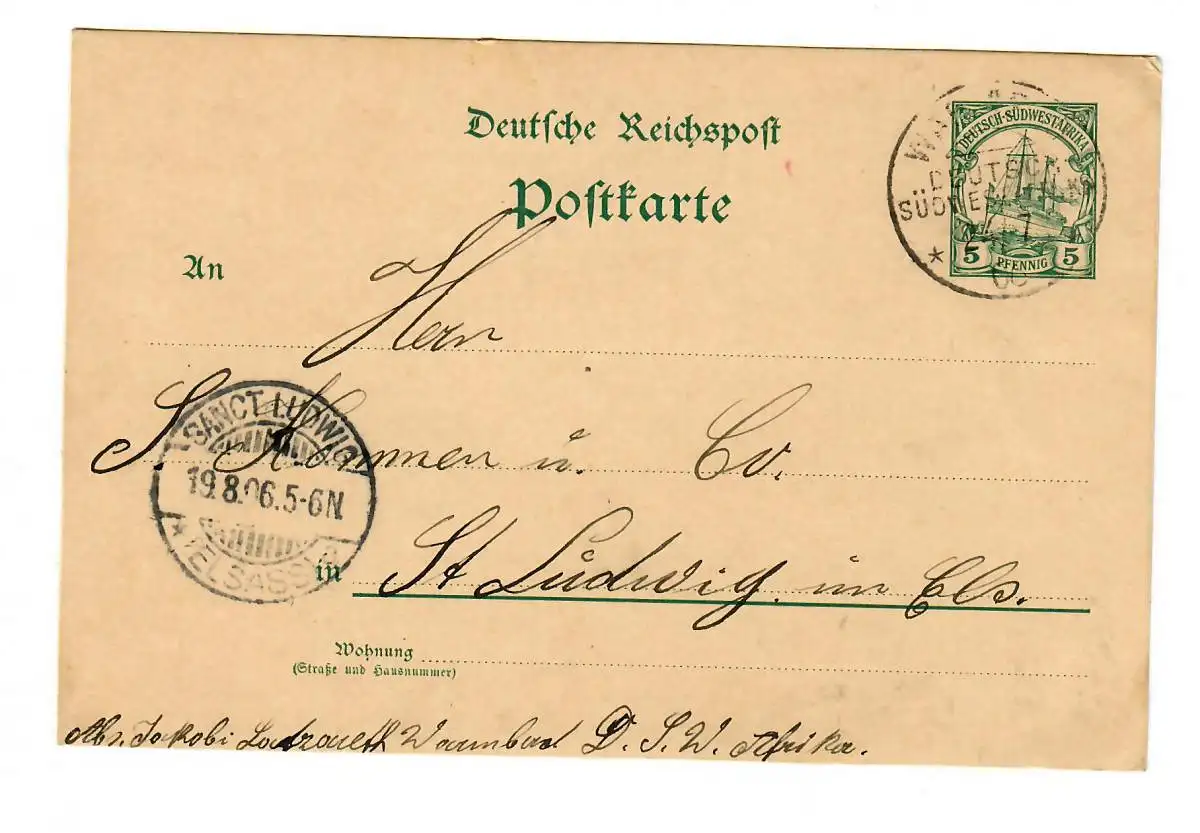 Deutsche Reichspost
Postkarte
DEUTSCH-SÜDWESTAFRIKA
5 PFENNIG 5
DEUTSCH
An Herrn
S. u. Co.
SANCT LUDWIG
19.8.06.5-6N.
*(ELSASS)*
in St Ludwig im Els.
Wohnung
(Straße und Hausnummer)
Abs. Jakobi Lazareth Warmbad D. S. W. Afrika.